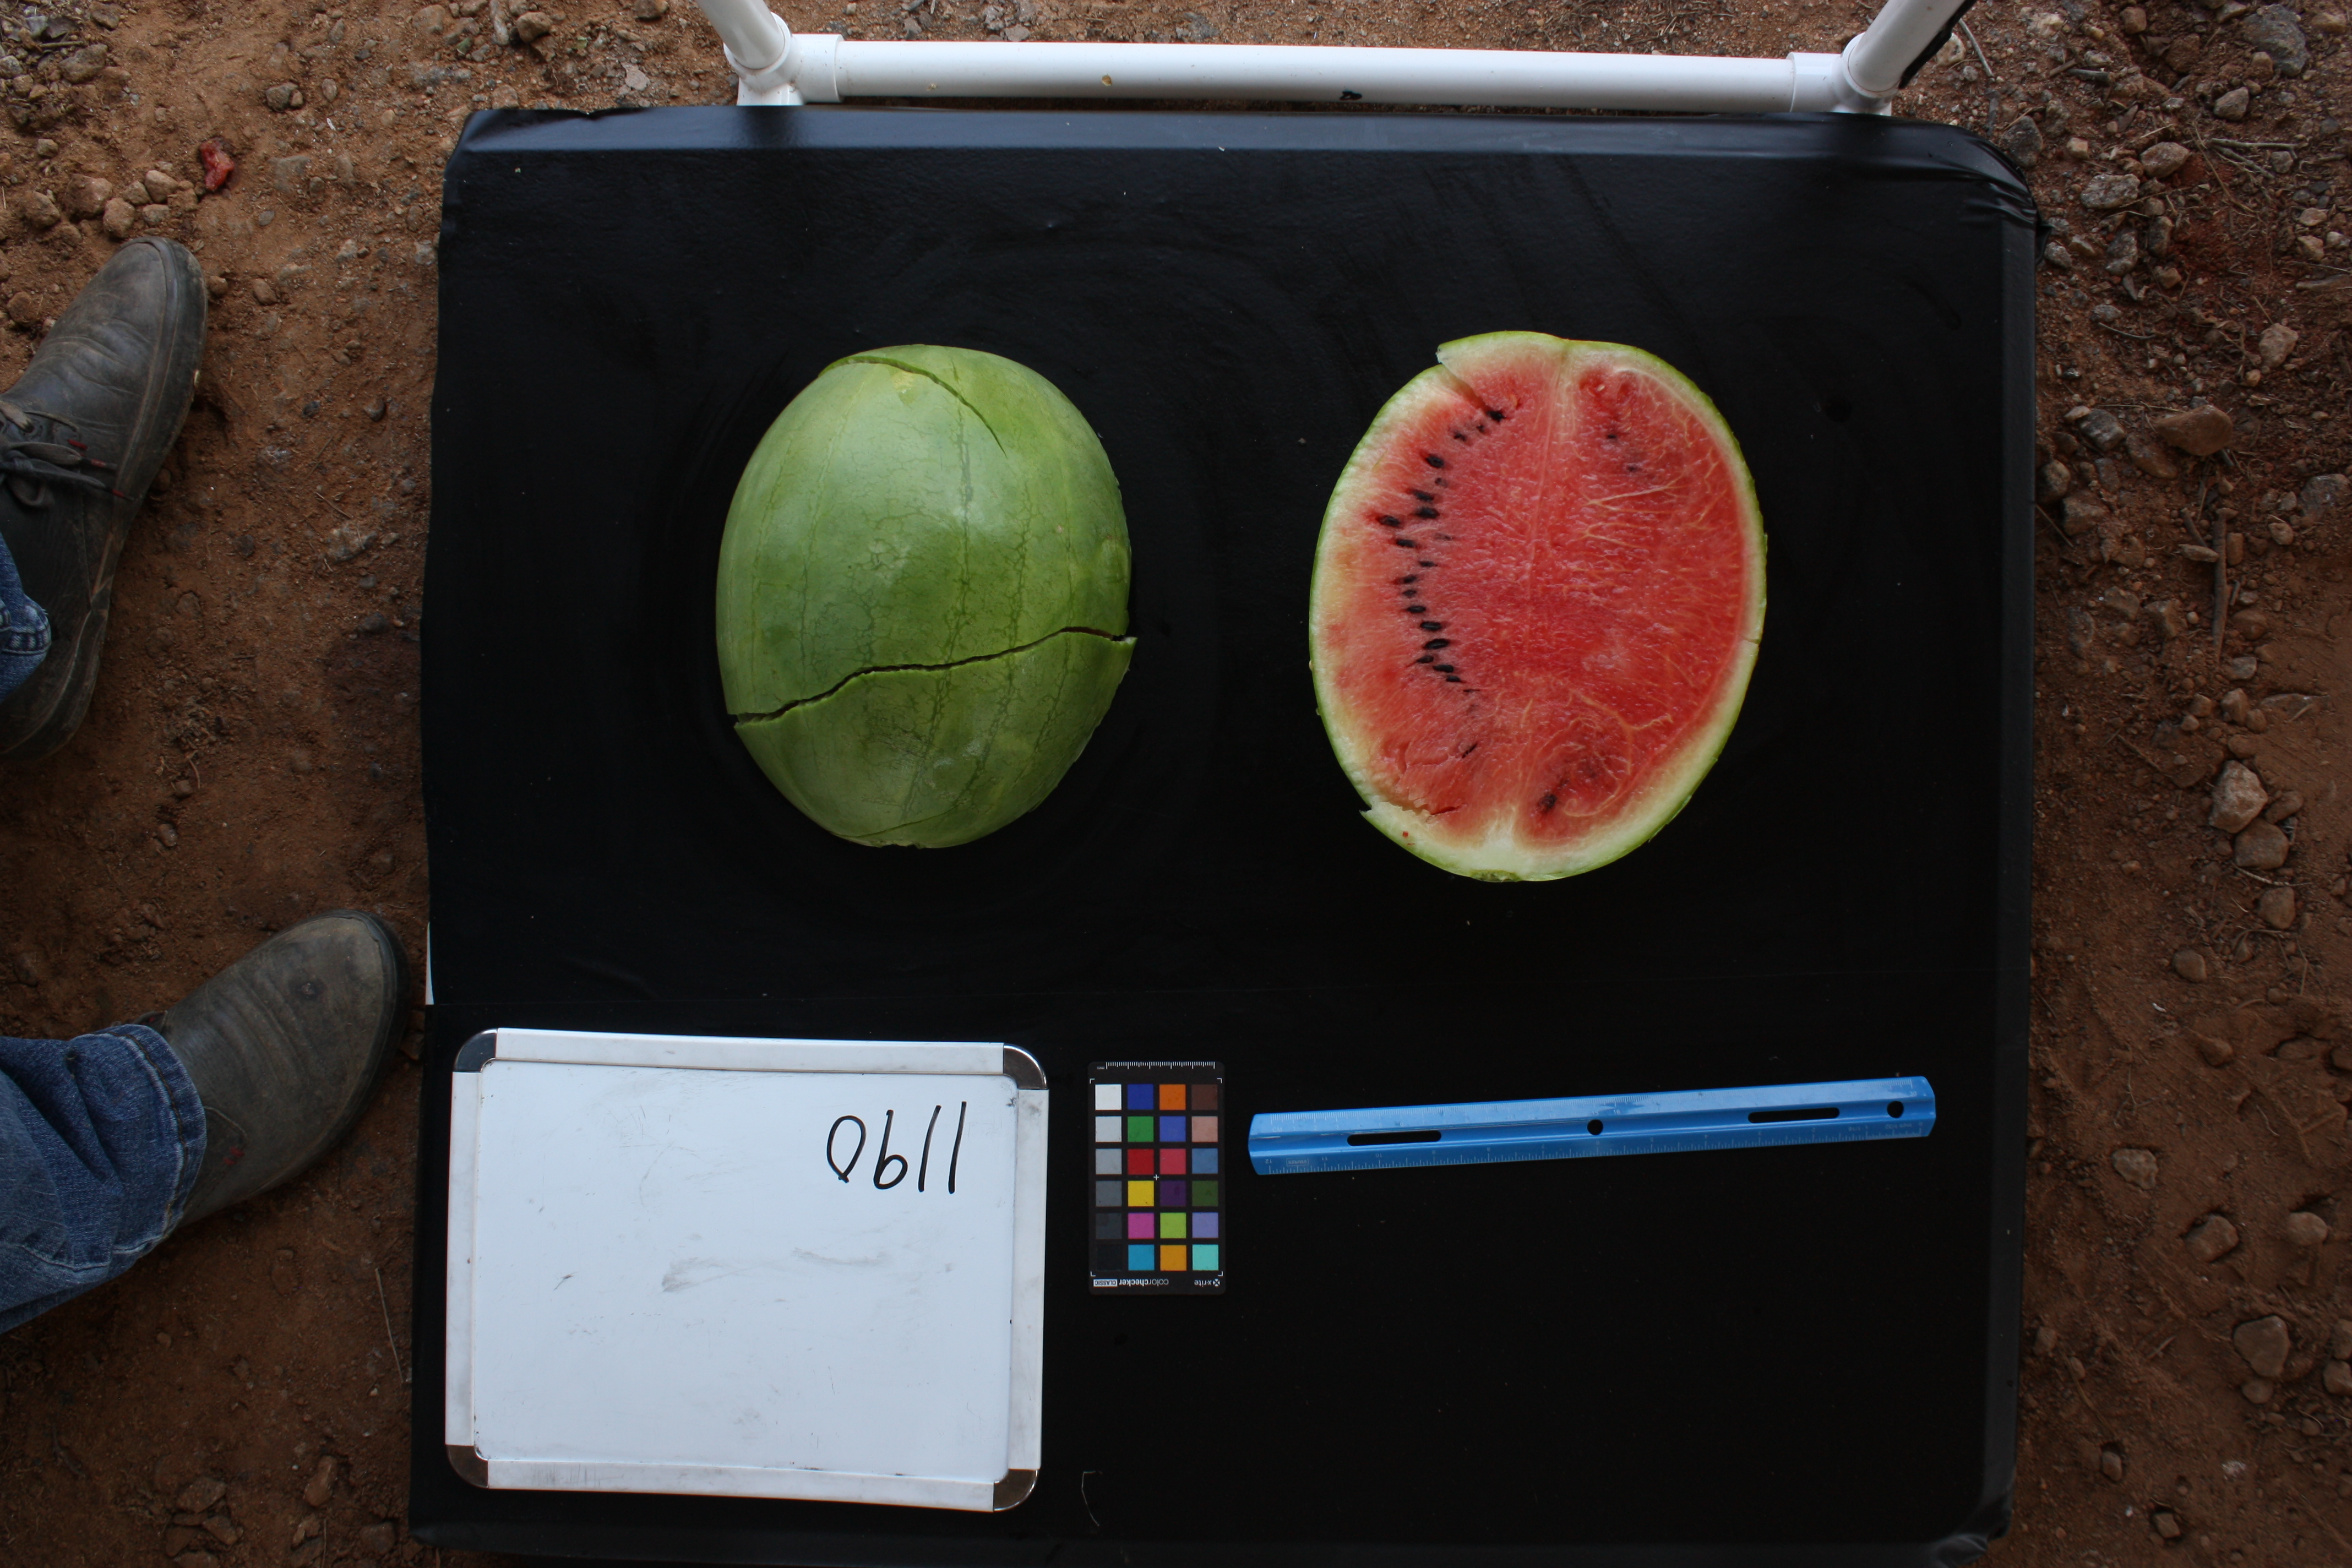 1190
x-rite
colorchecker CLASSIC